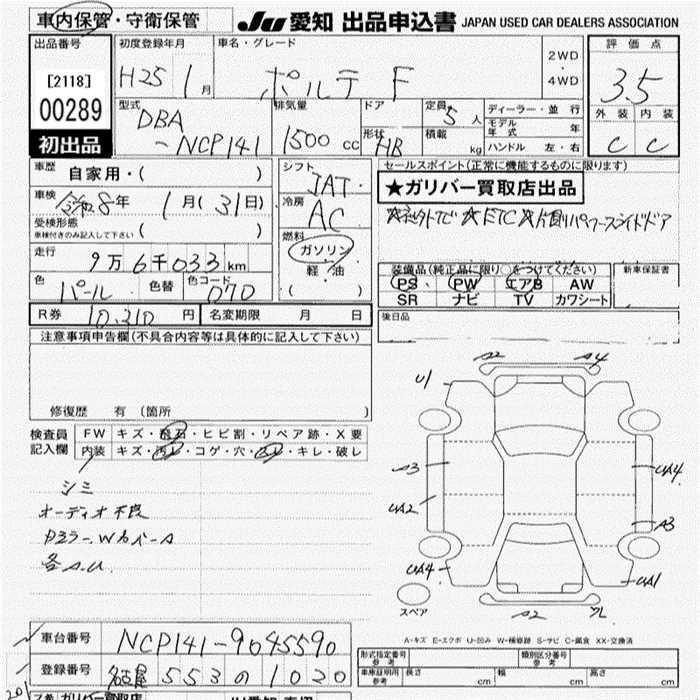 車内保管・守衛保管 JU 愛知 出品申込書 JAPAN USED CAR DEALERS ASSOCIATION
出品番号 初度登録年月 車名・グレード 2WD ・ 4WD 評価点
[2118] H25 1月 ポルテ F 3.5
00289 型式 排気量 ドア 定員 5人 ディーラー・並行 外装 内装
DBA モデル年式 年
初出品 -NCP141 1500cc 形状 HB 積載 kg ハンドル 左・右 C C
車歴 自家用・( ) シフト JAT セールスポイント(正常に機能するものに限ります)
車検 令和8年 1月(31日) 冷房 AC ★ガリバー買取店出品
受検形態 ( )
車検付きのみ記入して下さい
燃料 ガソリン・軽油 ( )
走行 9万6千033km
色 パール 色替 色コード 070
装備品(純正品に限り○をつけてください) 新車保証書
PS PW エアB AW
SR ナビ TV カワシート
R券 10,210円 名変期限 月 日 後日品
注意事項申告欄(不具合内容等は具体的に記入して下さい)
修復歴 有(箇所 )
検査員記入欄 FW キズ・飛石・ヒビ割・リペア跡・X要
内装 キズ・汚レ・コゲ・穴・凹ミ・キレ・破レ
シミ
オーディオ不良
各A.U.
A2 A4
U1
A3 UA4
UA2 A3
UA4 UA1
スペア A2
A-キズ E-エクボ U-凹み W-補修跡 S-サビ C-腐食 XX-交換済
車台番号 NCP141-9045590
登録番号 名古屋 553 の 1020
形式指定番号 参考 類別区分番号 参考
車庫証明用 参考 長さ cm 幅 cm 高さ cm